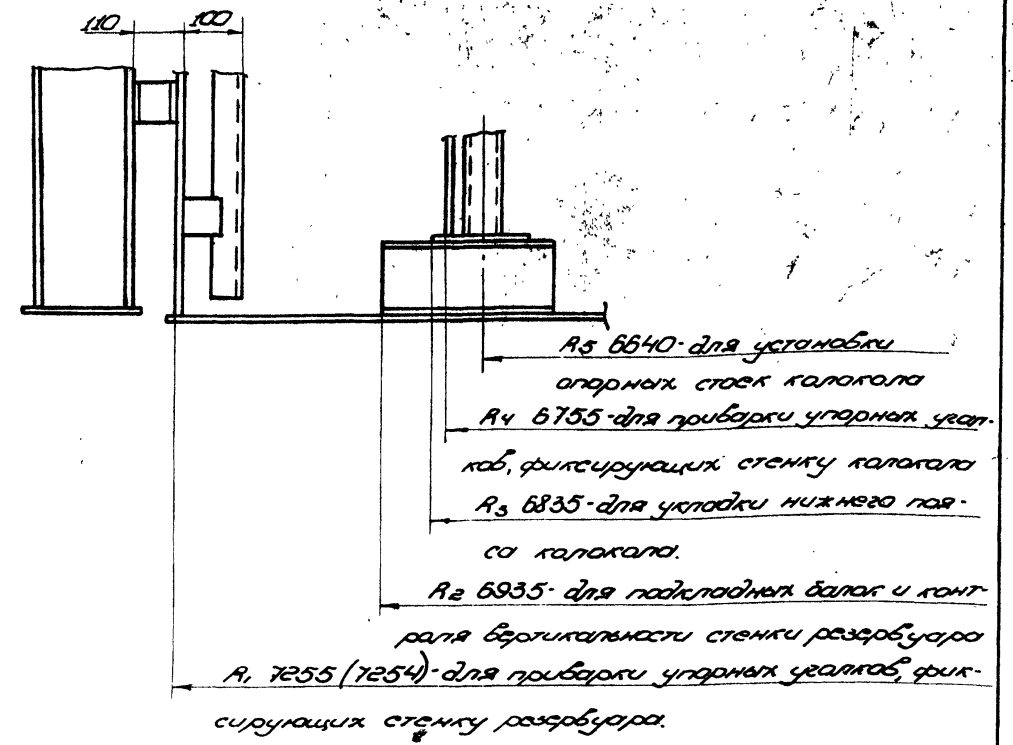 110 100
R5 6640-для установки
опорных стоек колокола
R4 6755-для приварки упорных угол-
ков, фиксирующих стенку колокола
R3 6835-для укладки нижнего поя-
са колокола.
R2 6935-для подкладных балок и конт-
роля вертикальности стенки резервуара
R1 7255 (7254)-для приварки упорных уголков, фик-
сирующих стенку резервуара.